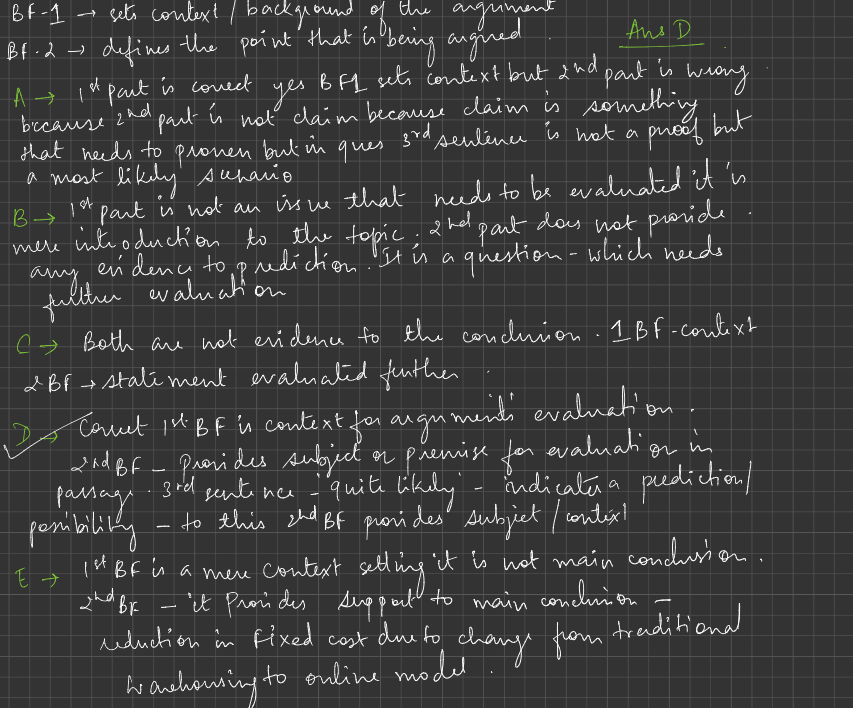 BF-1 → sets context / background of the argument
BF-2 → defines the point that is being argued.
Ans D
A → 1st part is correct yes BF1 sets context but 2nd part is wrong
because 2nd part is not claim because claim is something
that needs to proven but in ques 3rd sentence is not a proof but
a most likely scenario
B → 1st part is not an issue that needs to be evaluated it is
mere introduction to the topic. 2nd part does not provide
any evidence to prediction. It is a question - which needs
further evaluation
C → Both are not evidence to the conclusion. 1BF-context
2BF → statement evaluated further.
D → Correct 1st BF is context for argument's evaluation.
2nd BF - Provides subject or premise for evaluation in
passage. 3rd sentence - 'quite likely' - indicates a prediction/
possibility - to this 2nd BF provides subject / context
E → 1st BF is a mere context setting it is not main conclusion.
2nd BF - it Provides support to main conclusion -
reduction in fixed cost due to change from traditional
warehousing to online model.